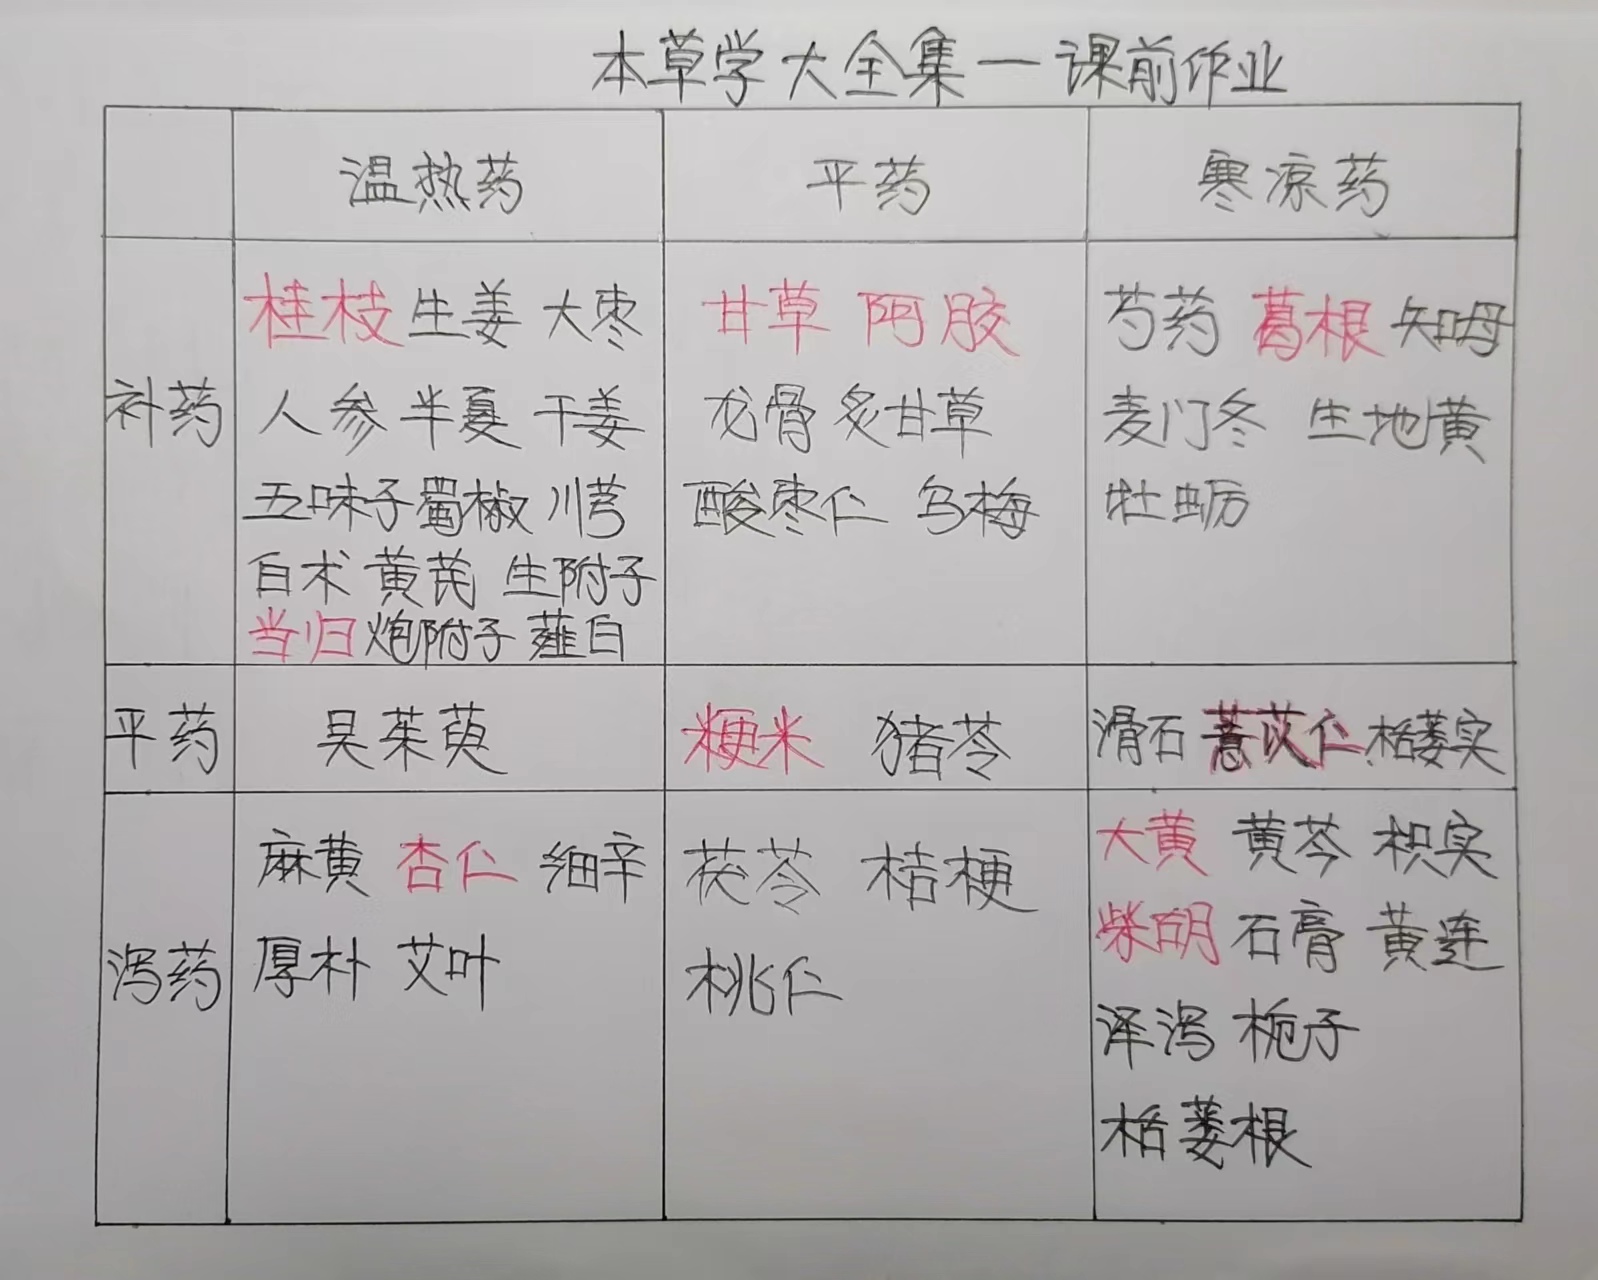 本草学大全集一课前作业
温热药 平药 寒凉药
补药
桂枝 生姜 大枣
人参 半夏 干姜
五味子 蜀椒 川芎
白术 黄芪 生附子
当归 炮附子 薤白
甘草 阿胶
龙骨 炙甘草
酸枣仁 乌梅
芍药 葛根 知母
麦门冬 生地黄
牡蛎
平药
吴茱萸
粳米 猪苓
滑石 薏苡仁 栝蒌实
泻药
麻黄 杏仁 细辛
厚朴 艾叶
茯苓 桔梗
桃仁
大黄 黄芩 枳实
柴胡 石膏 黄连
泽泻 栀子
栝蒌根